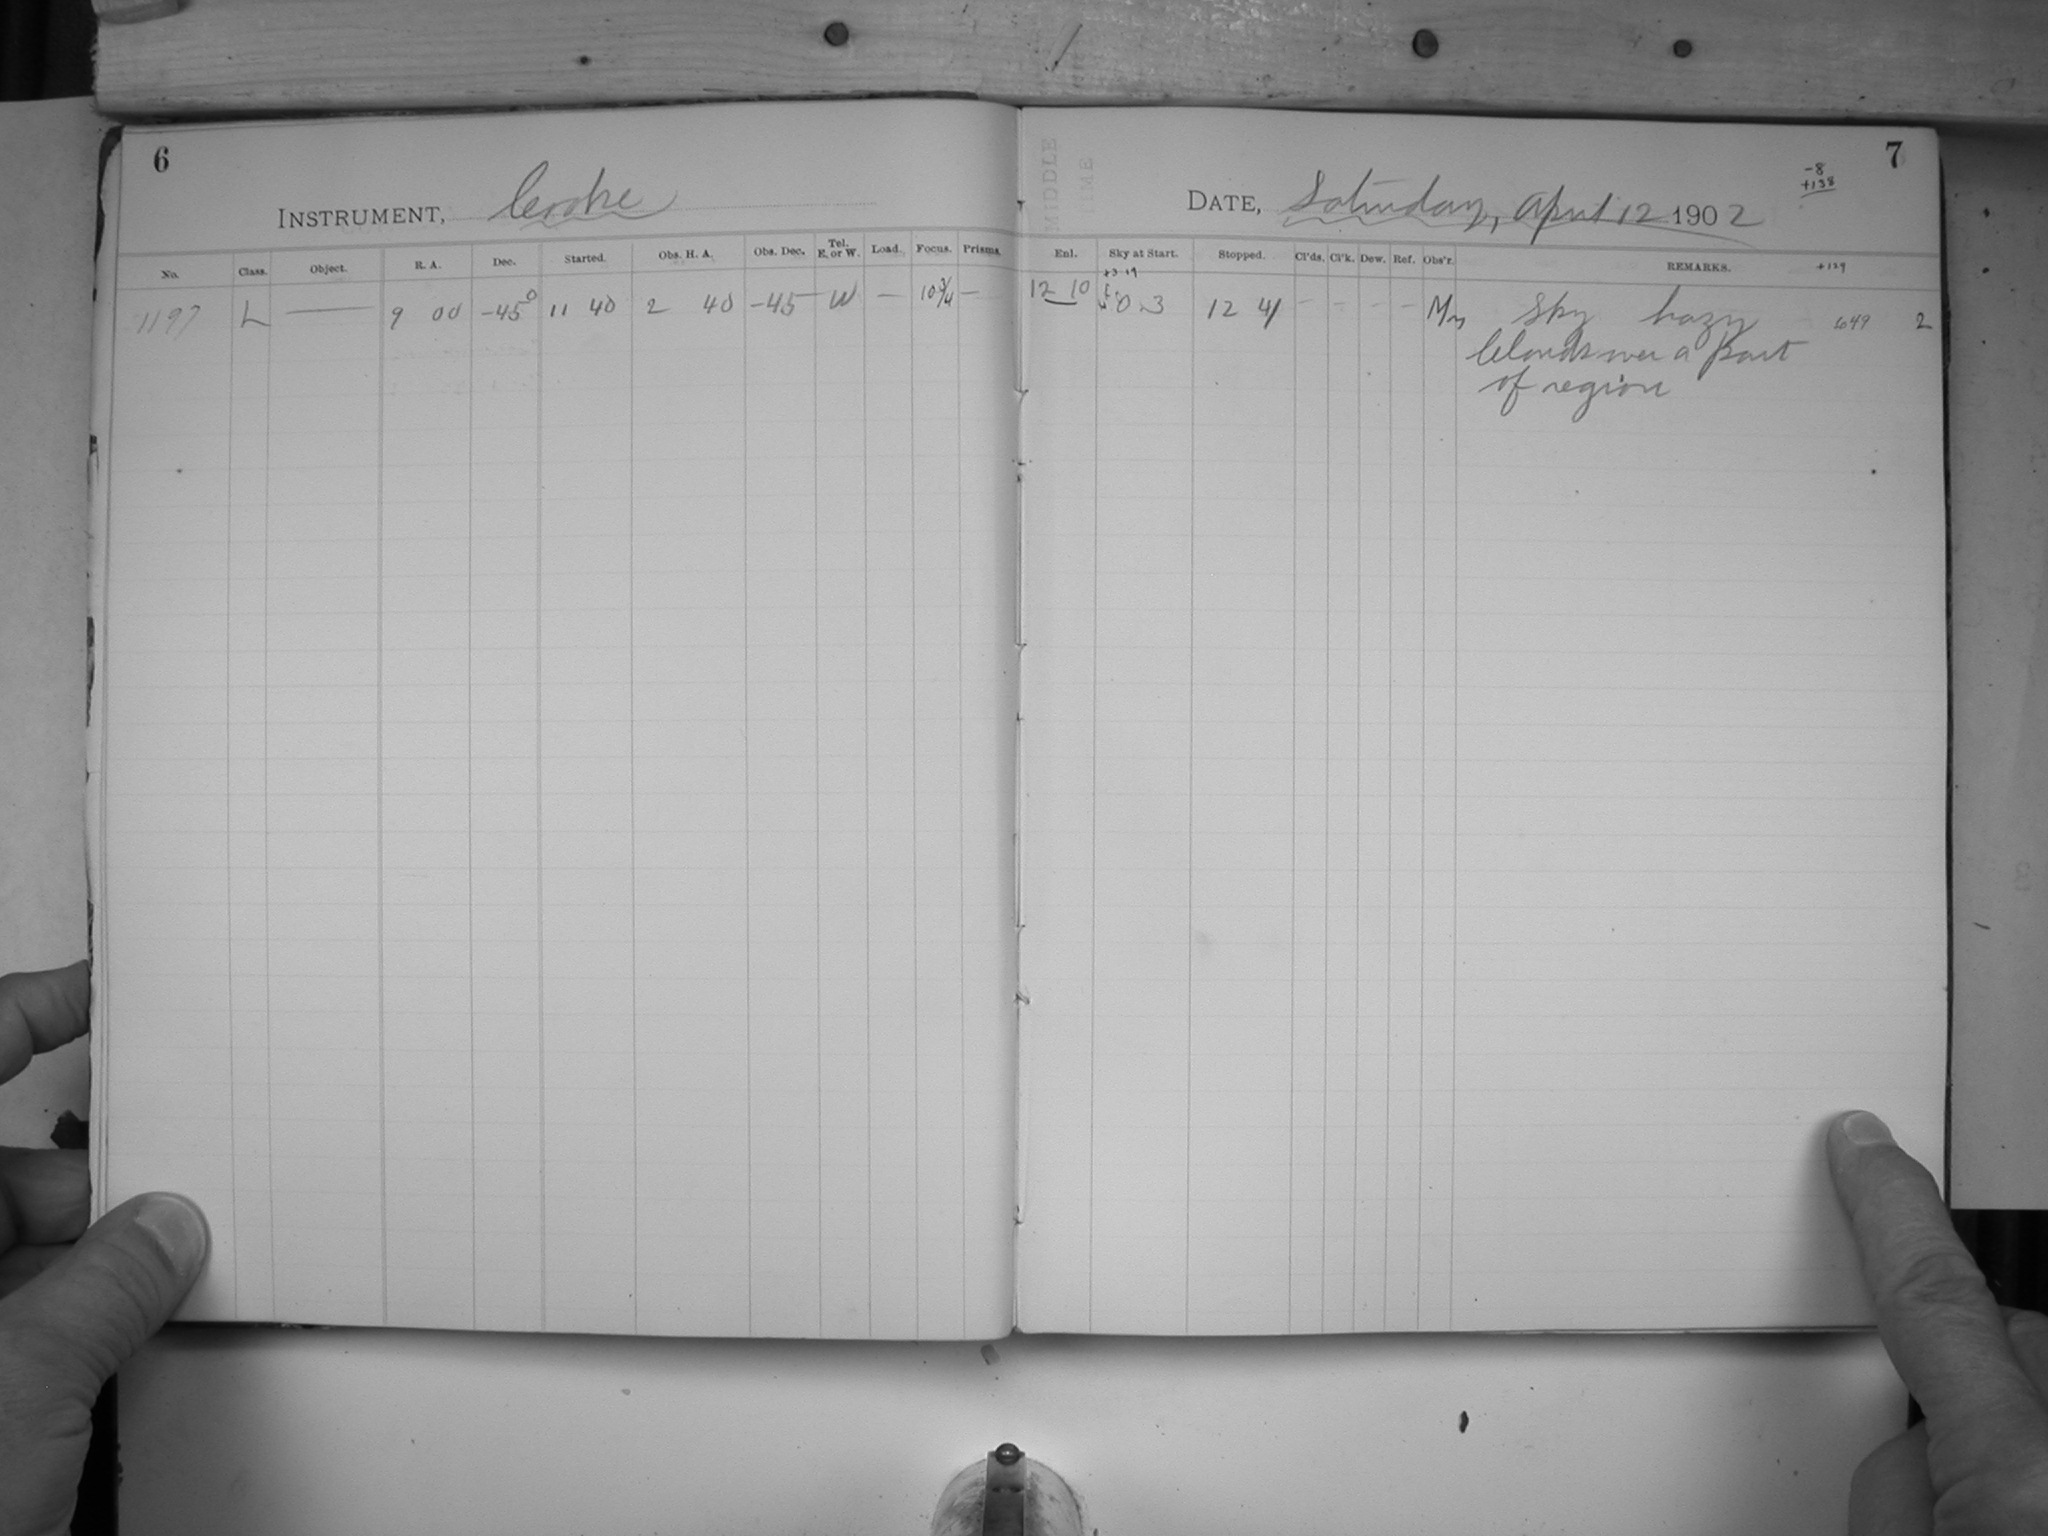 6
INSTRUMENT, Cooke
No. Class. Object. R. A. Dec. Started. Obs. H. A. Obs. Dec. Tel. E. or W. Load. Focus. Prisms.
1197 L — 9 00 -45° 11 40 2 40 -45 W — 10 3/4 —
7
-8
+138
MIDDLE
TIME
DATE, Saturday, April 12 1902
Enl. Sky at Start. Stopped. Cl'ds. Cl'k. Dew. Ref. Obs'r. REMARKS. +129
+3 19
12 10 0 3 12 41 - - - - Sky hazy 649 2
Clouds over a part
of region